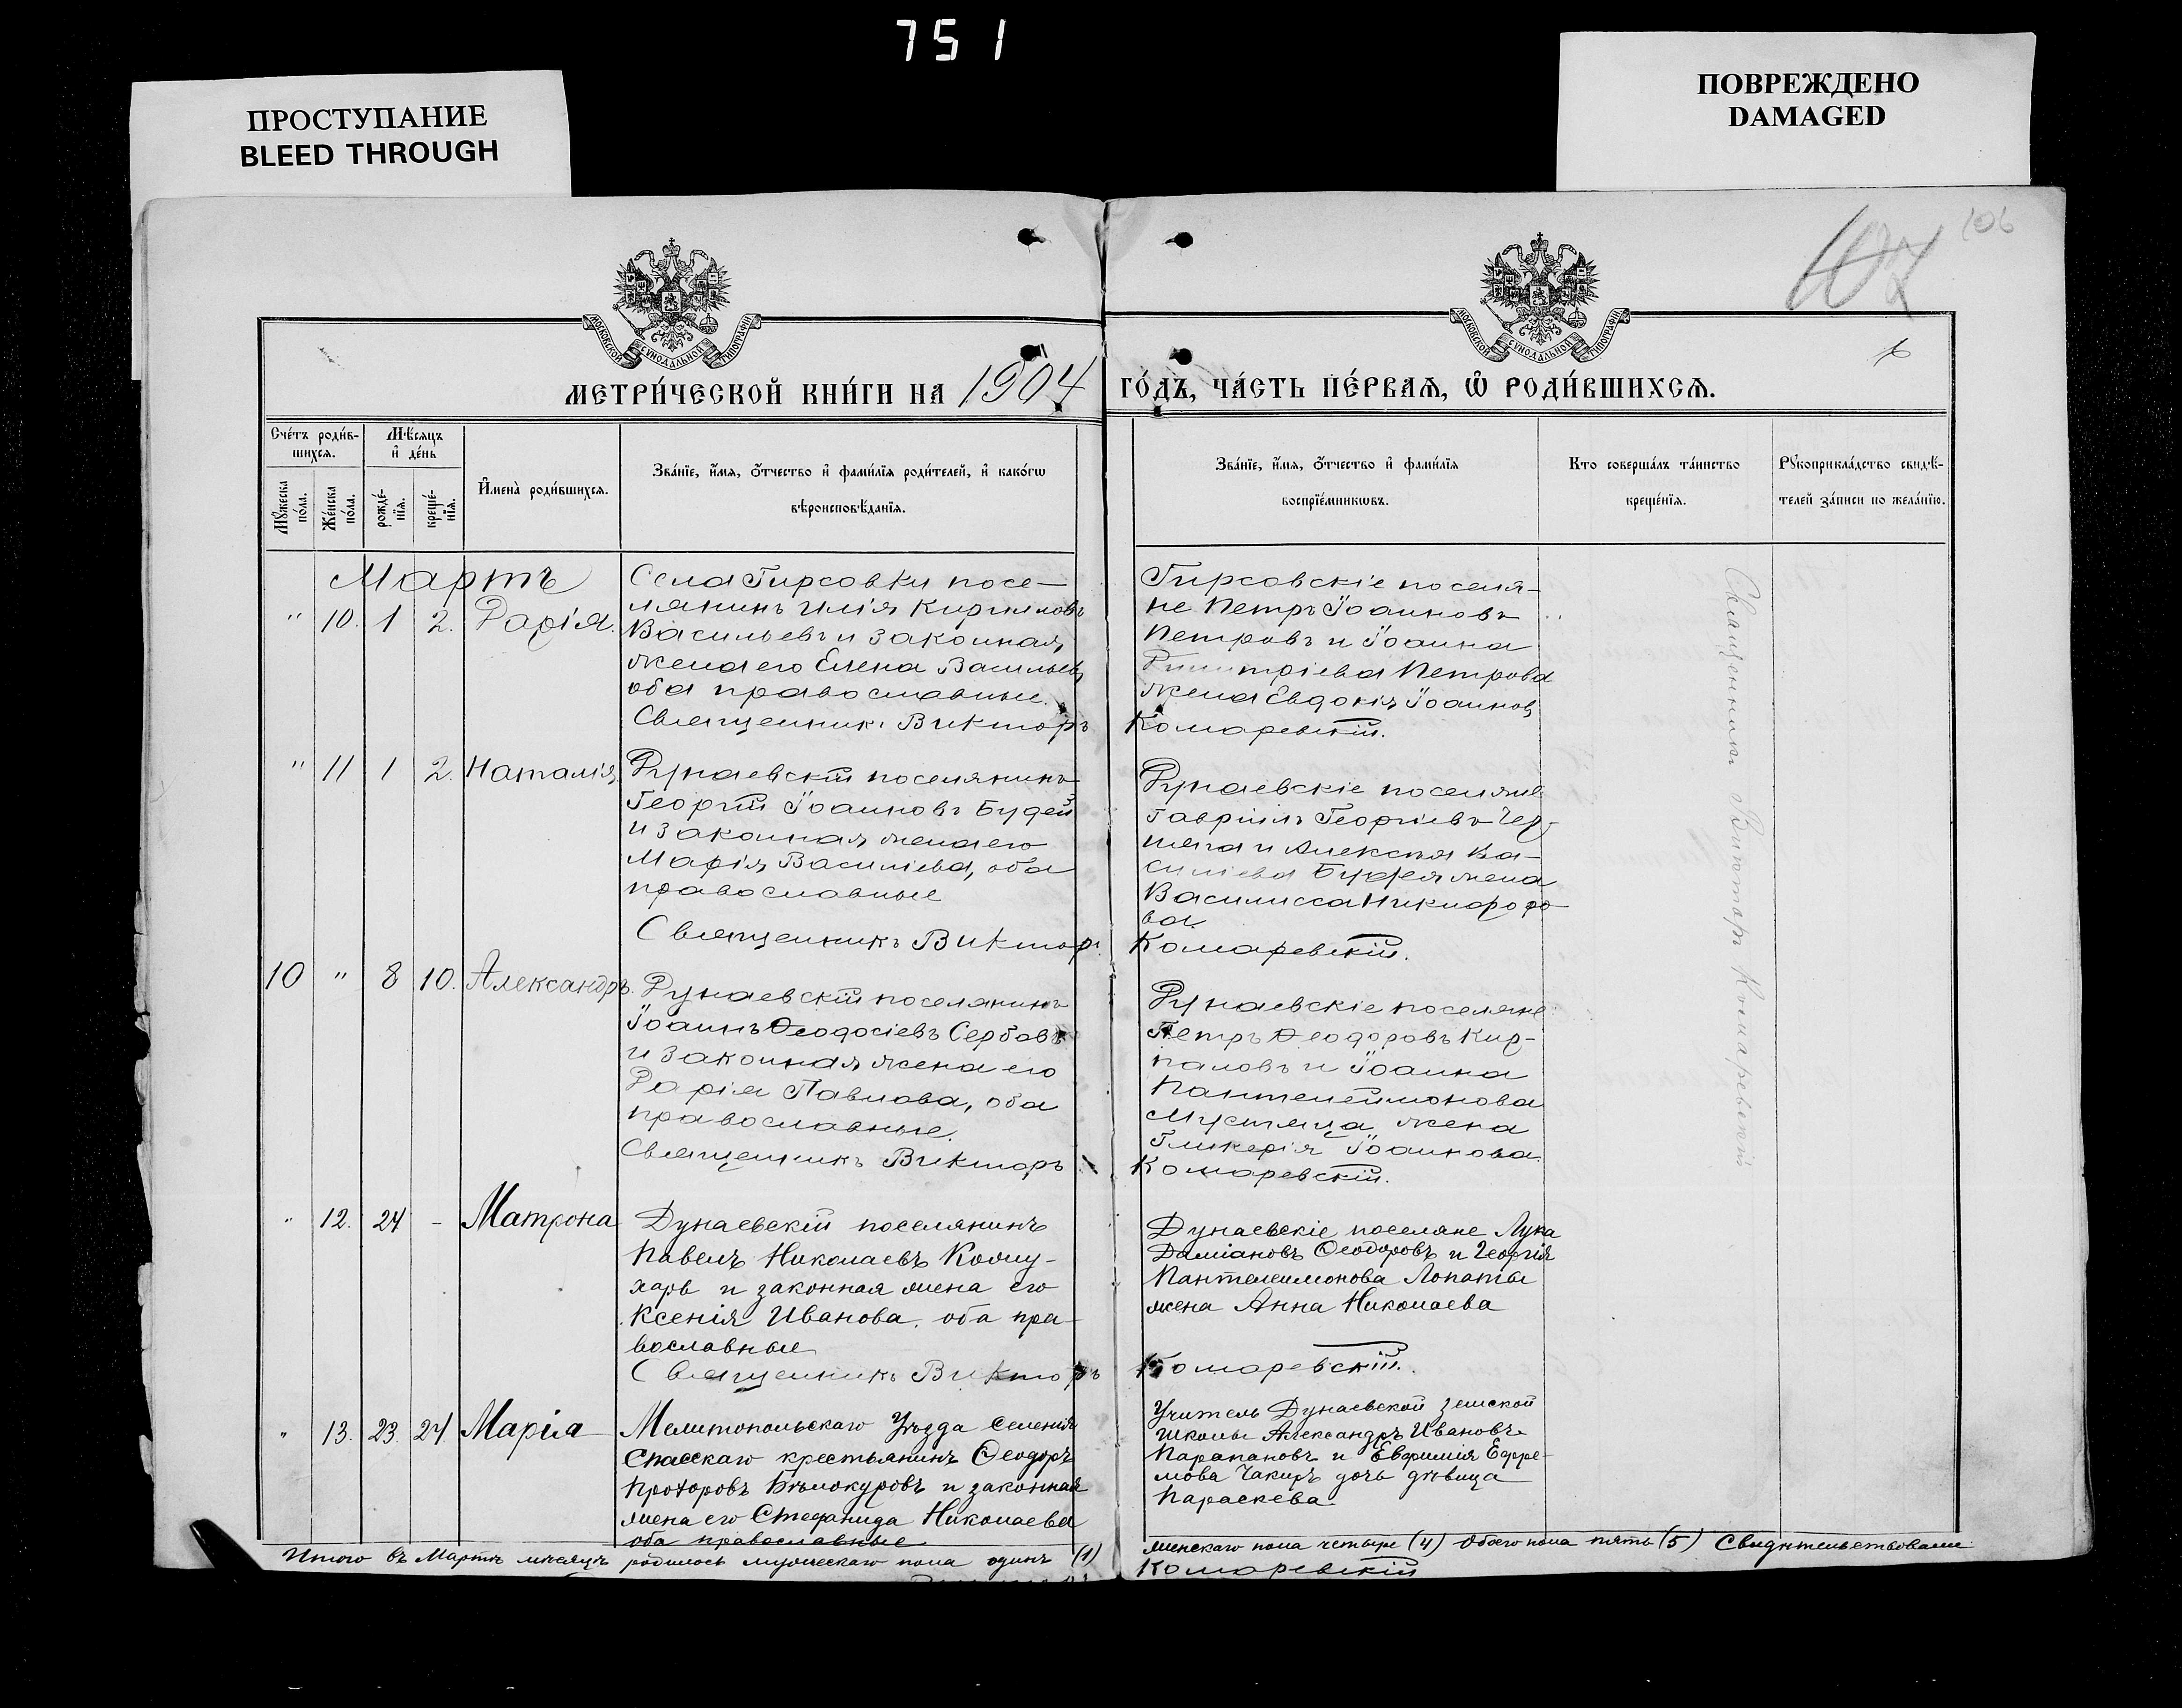 751
ПРОСТУПАНИЕ
BLEED THROUGH
ПОВРЕЖДЕНО
DAMAGED
106
107
МОСКОВСКОЙ СѴНОДАЛЬНОЙ ТИПОГРАФІИ
МОСКОВСКОЙ СѴНОДАЛЬНОЙ ТИПОГРАФІИ
МЕТРИ́ЧЕСКОЙ КНИ́ГИ НА 1904 ГО́ДЪ, ЧА́СТЬ ПЕ́РВАѦ, Ѡ РОДИ́ВШИХСѦ.
Сче́тъ роди́в-
шихсѧ.
Мꙋжеска по́ла.
Же́нска по́ла.
Мѣ́сѧцъ и де́нь
рожде́-нїѧ.
креще́-нїѧ.
Имена̀ роди́вшихсѧ.
Зва́нїе, и́мѧ, о́тчество и фами́лїѧ роди́телей, и како́гѡ
вѣроисповѣ́данїѧ.
Зва́нїе, и́мѧ, о́тчество и фами́лїѧ
воспрїе́мникѡвъ.
Кто соверша́лъ та́инство
креще́нїѧ.
Рꙋкоприкла́дство свидѣ́-
телей за́писи по жела́нїю.
Мартъ
" 10. 1 2. Дарія.
Села Гирсовки посе-
лянинъ Илія Кирилловъ
Васильевъ и законная
жена его Елена Васильев
оба православные.
Священникъ Викторъ
Гирсовскіе поселя-
не Петръ Іоанновъ
Петровъ и Іоанна
Димитріева Петрова
жена Евдокія Іоаннов
Комаревскій.
" 11 1 2. Наталія
Дунаевскій поселянинъ
Георгій Іоанновъ Будей
и законная жена его
Марія Василіева, оба
православные
Священникъ Виктор.
Дунаевскіе поселяне
Гавріилъ Георгіевъ Чер-
и Алексѣя Ва-
силіева жена
Василисса Никифоро
ва.
Комаревскій.
10 " 8 10. Александръ.
Дунаевскій поселянинъ
Іоаннъ Ѳеодосіевъ Сербовъ
и законная жена его
Дарія Павлова, оба
православные.
Священникъ Викторъ
Дунаевскіе поселяне
Петръ Ѳеодоровъ Кир-
пановъ и Іоанна
Пантелеймонова
жена
Гликерія Іоаннова
Комаревскій.
" 12. 24 - Матрона
Дунаевскій поселянинъ
Павелъ Николаевъ Кому-
харь и законная жена его
Ксенія Иванова. оба пра-
вославные
Священникъ Викторъ
Дунаевскіе поселяне Лука
Даміановъ Ѳеодоровъ и Георгія
Пантелеимонова Лопаты
жена Анна Николаева
Комаревскій.
" 13. 23. 24 Марія
Мелитопольскаго Уѣзда селенія
Спасскаго крестьянинъ Ѳеодоръ
Прохоровъ Бѣлокуровъ и законная
жена его Стефанида Николаева
оба православные
Учитель Дунаевской земской
школы Александръ Ивановъ
Парапановъ и Евфимія Ефре-
мова Чакиръ дочь дѣвица
Параскева.
Итого въ Мартѣ мѣсяцѣ родилось мужескаго пола одинъ (1)
женскаго пола четыре (4) Обоего пола пять (5) Свидѣтельствовали
Комаревскій
Священникъ Викторъ Комаревскій